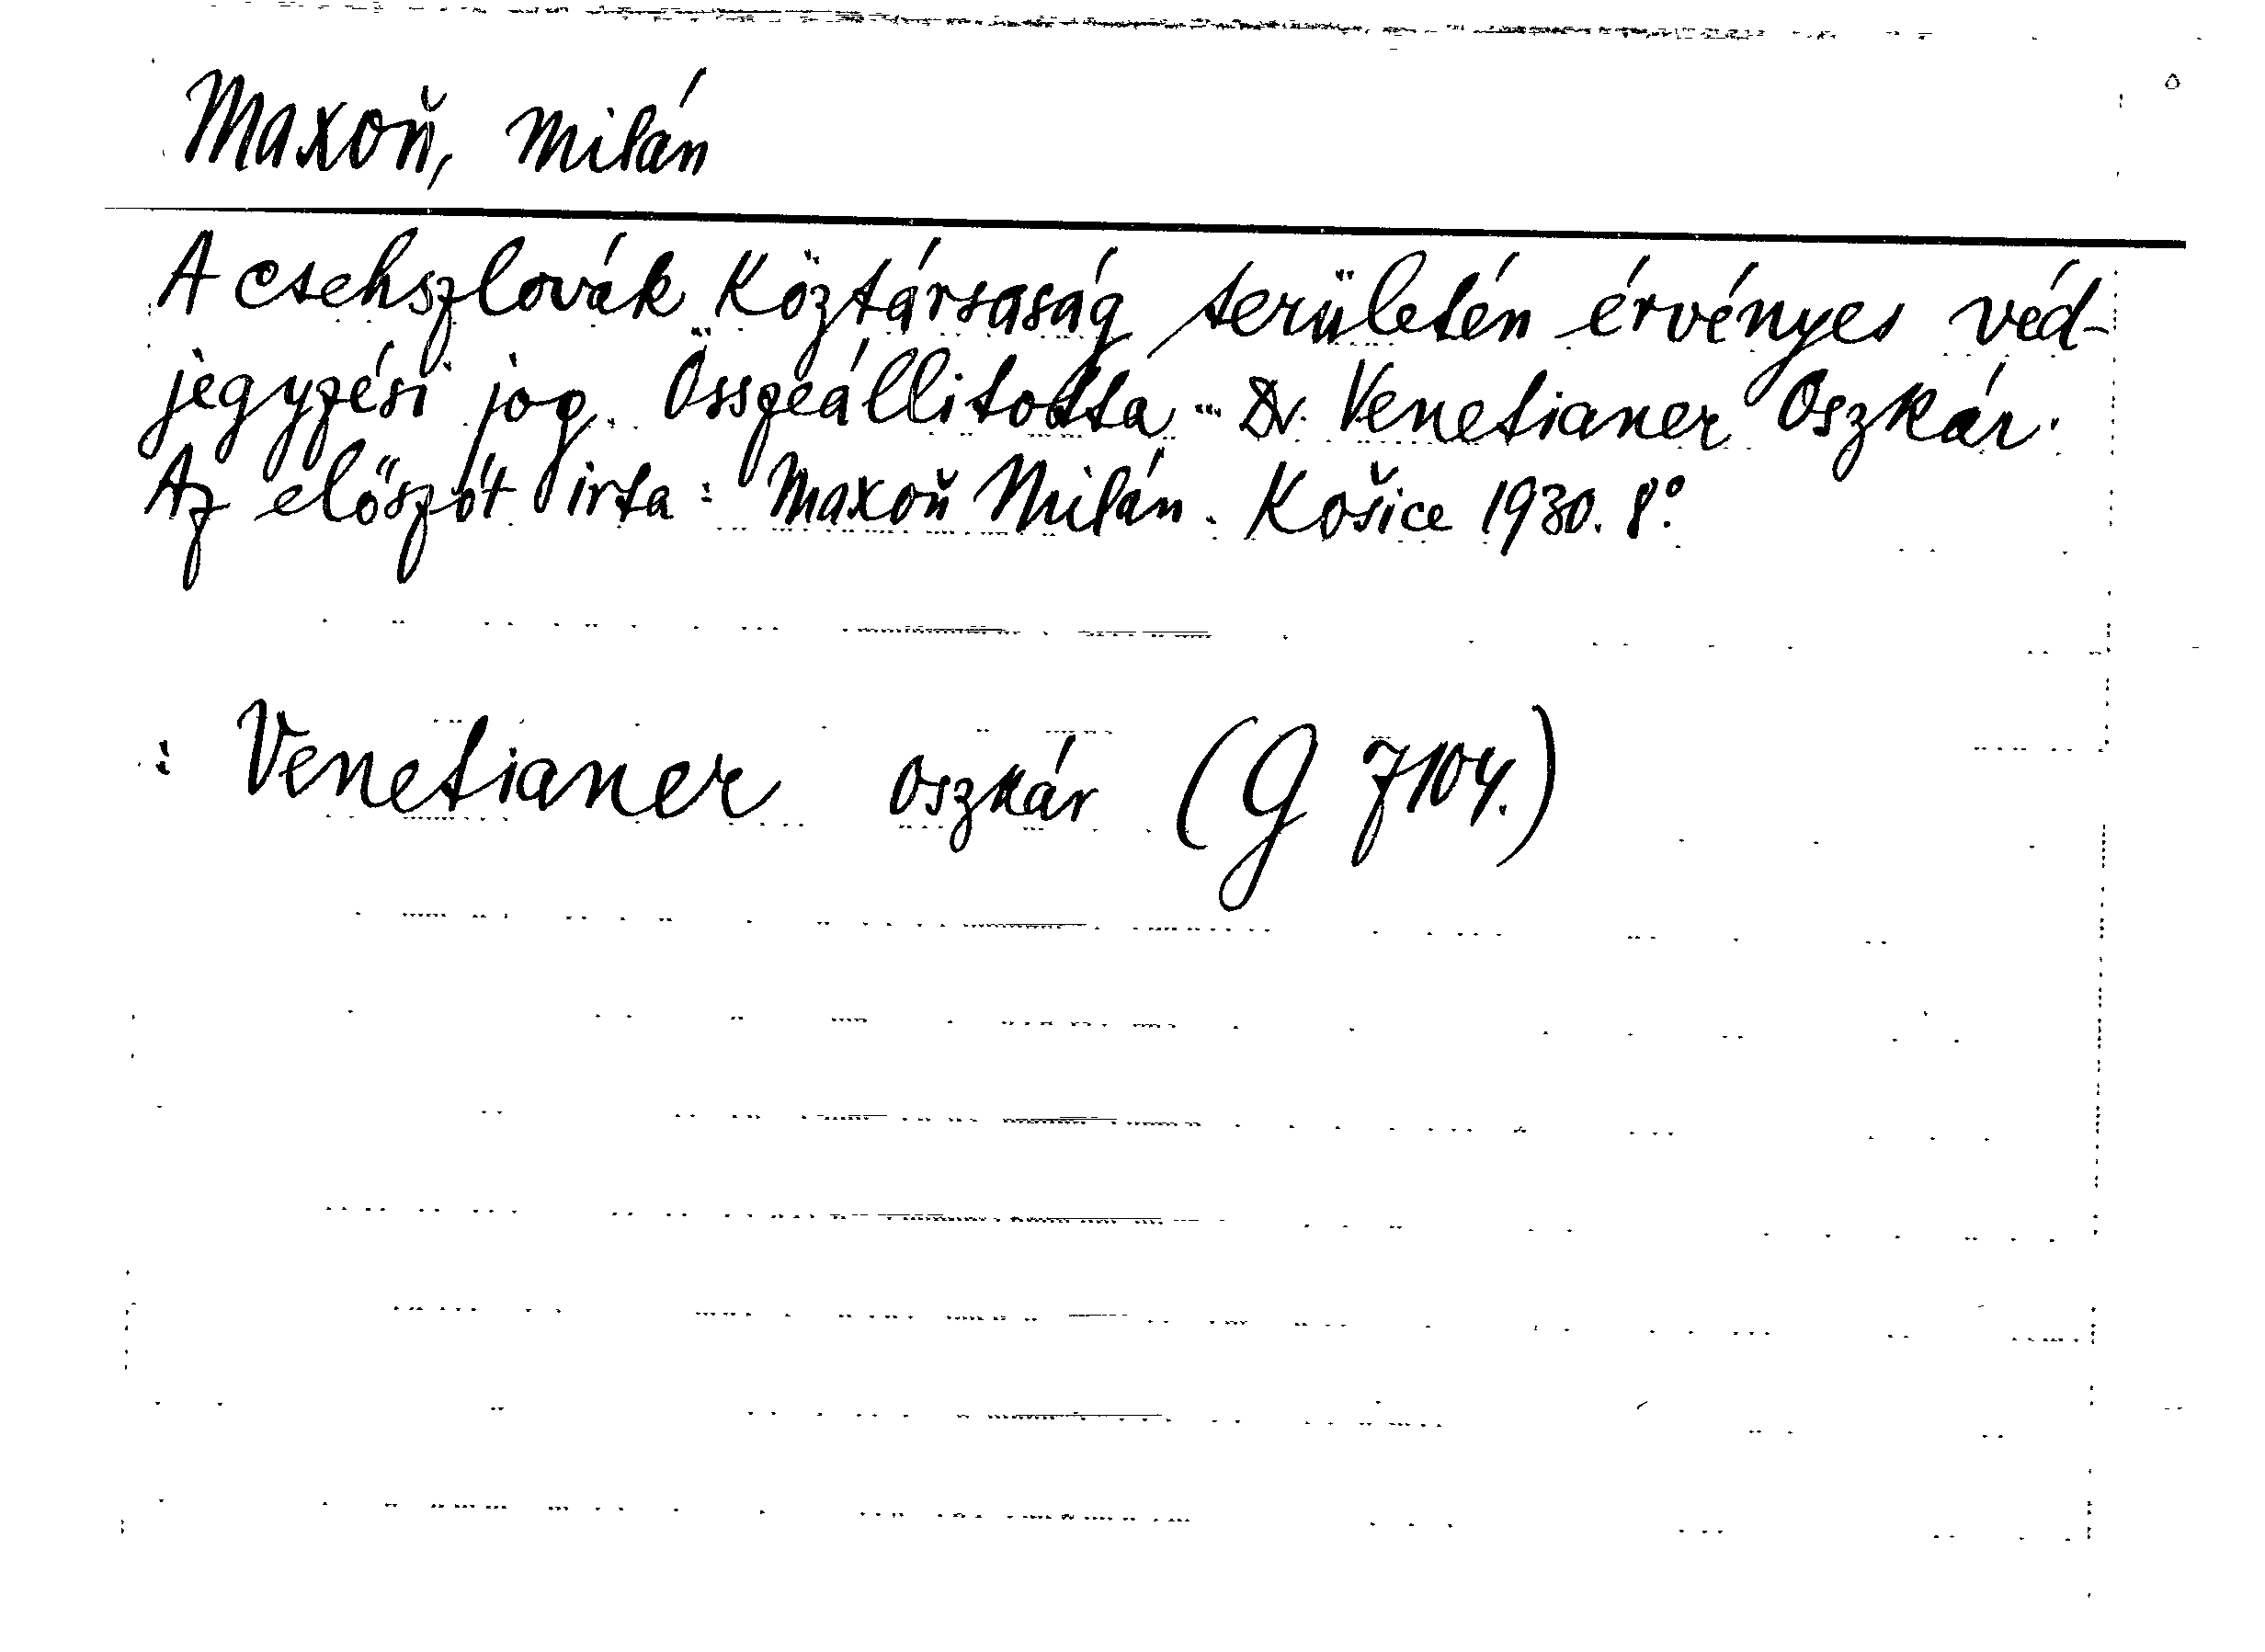 Maxoň, Milán
A csehszlovák Köztársaság területén érvényes véd-
jegyzési jog. Összeállította ... Dr. Venetianer Oszkár.
Az előszót irta: Maxoň Milán. Košice 1930. 8°.
: Venetianer Oszkár (G 7104.)